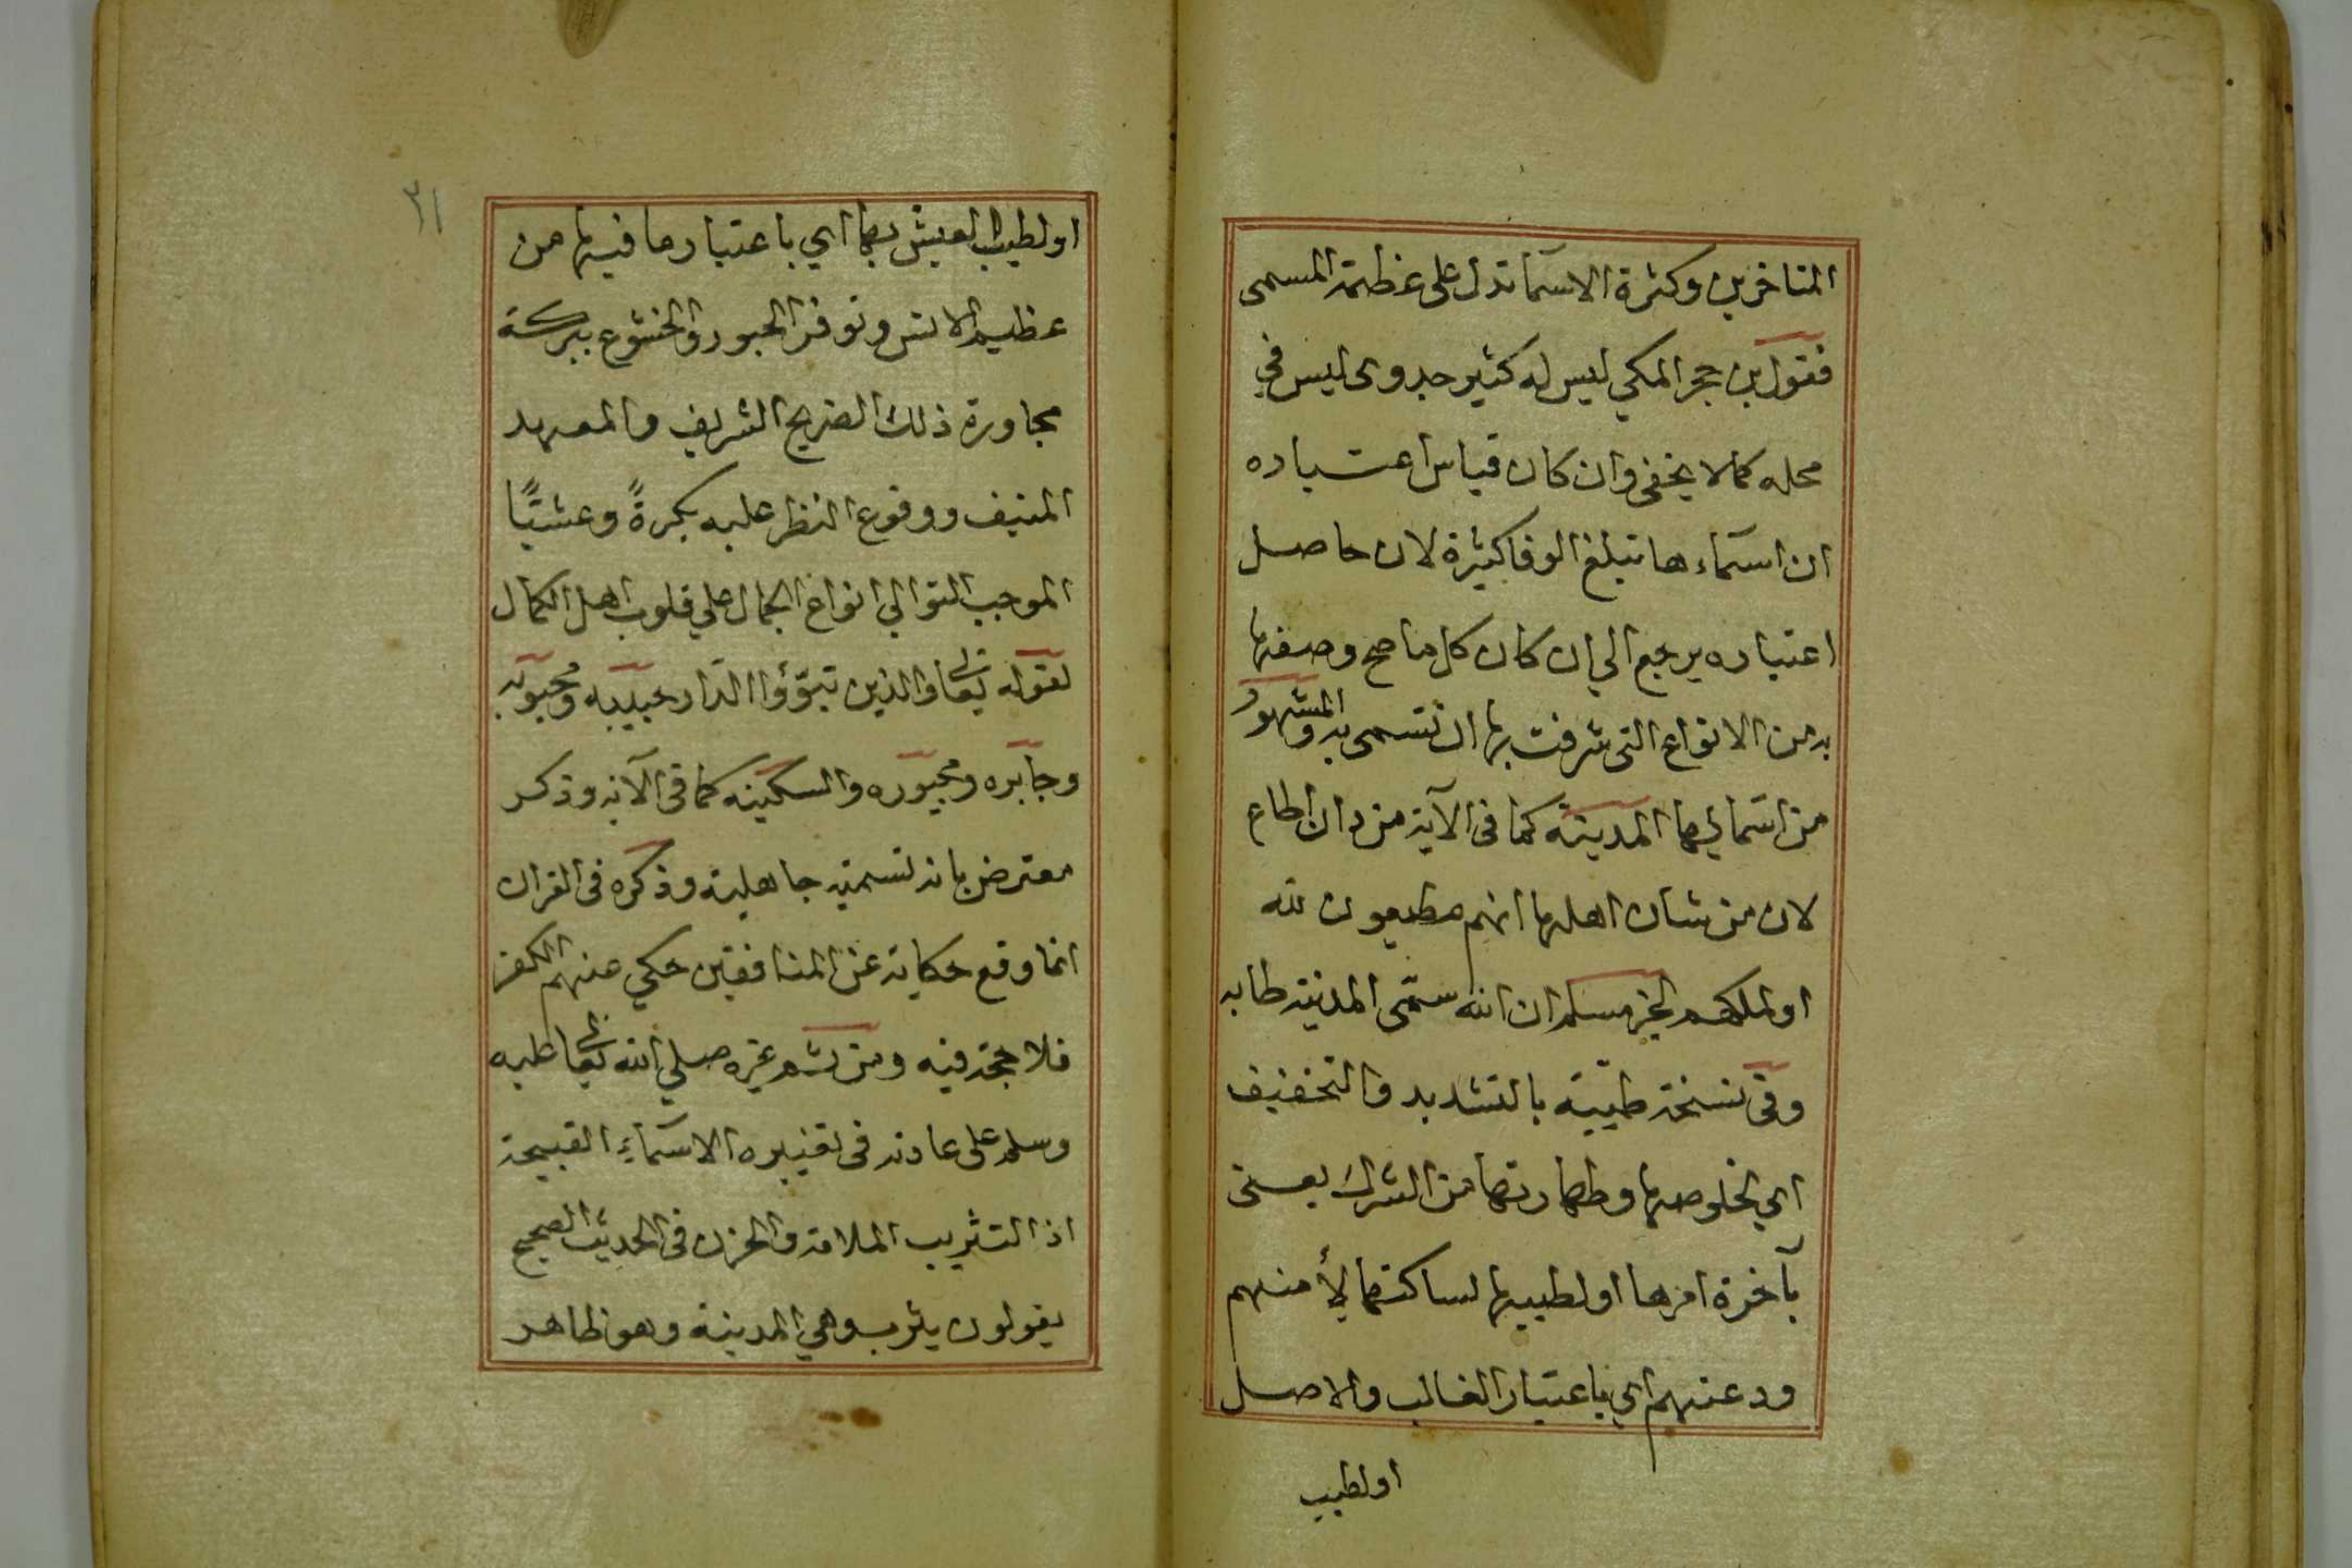 المتاخرين وكثرة الاسما تدل على عظمة المسمى
فقول بن حجر المكي ليس له كثير جدوى ليس في
محله كما لا يخفى وان كان قياس اعتباره
ان اسماءها تبلغ الوفا كثيرة لان حاصل
اعتباره يرجع الي ان كان كل ما صح وصفها
به من الانواع التى شرفت بها ان تسمى به والمشهور
من اسمائها المدينة كما فى الآية من دان اطاع
لان من شان اهلها انهم مطيعون لله
او لملكهم لخبر مسلم ان الله سمّى المدينة طابه
وفى نسخة طيبة بالتشديد والتخفيف
اي لخلوصها وطهارتها من الشرك يعنى
بآخرة امرها او لطيبها لساكنها لأمنهم
ودعتهم اي باعتبار الغالب والاصل
او لطيب
٣١
او لطيب العيش بها اي باعتبار ما فيها من
عظيم الانس وتوفر الحبور والخشوع ببركة
مجاورة ذلك الضريح الشريف والمعهد
المنيف ووقوع النظر عليه بكرةً وعشيًّا
الموجب التوالي انواع الجمال علي قلوب اهل الكمال
لقوله تعالى والذين تبوّؤا الدّار حبيبه ومحبوبه
وجابره ومجبوره والسكينه كما فى الآيه وذكر
معترض بانه تسمية جاهلية وذكره فى القران
انما وقع حكاية عن المنافقين حكي عنهم الكفر
فلا حجة فيه ومن ثم غيره صلي الله تعالى عليه
وسلم على عادته فى تغييره الاسماءِ القبيحة
اذ التثريب الملامة والحزن فى الحديث الصحيح
يقولون يثرب وهي المدينة وهو ظاهر